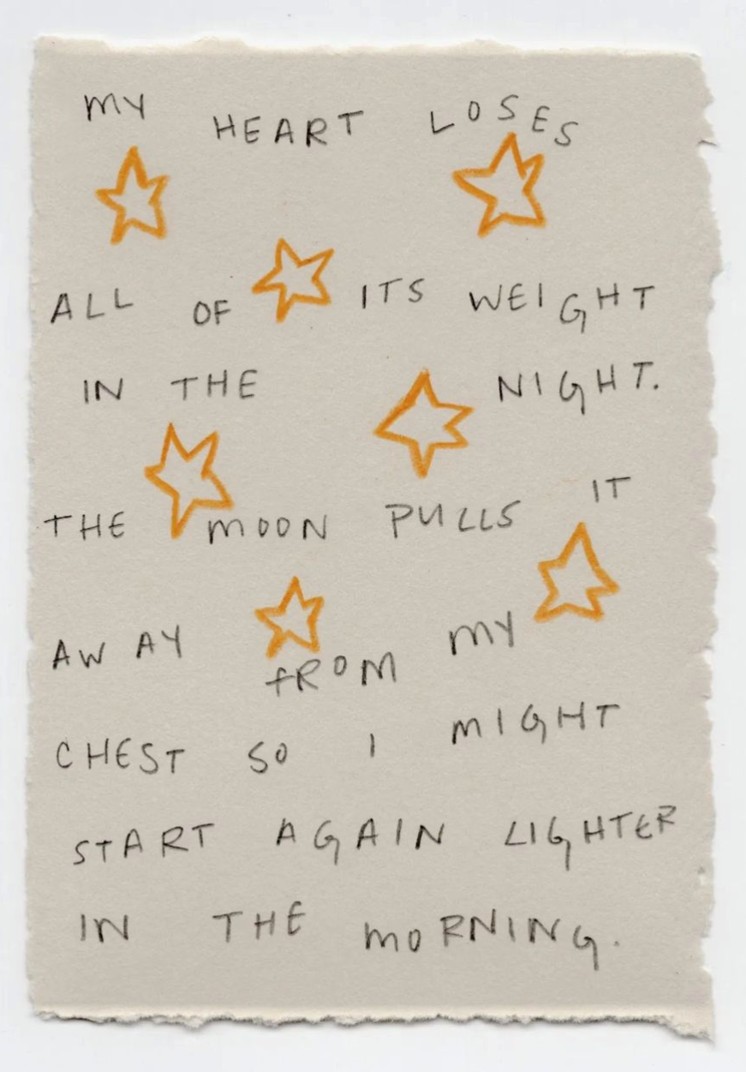 MY HEART LOSES
ALL OF ITS WEIGHT
IN THE NIGHT.
THE MOON PULLS IT
AWAY FROM MY
CHEST SO I MIGHT
START AGAIN LIGHTER
IN THE MORNING.